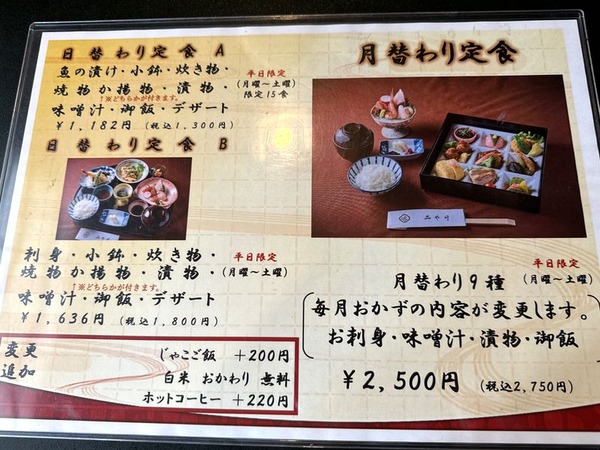 日替わり定食A
魚の漬け・小鉢・炊き物・
焼物か揚物・漬物・
↑※どちらかが付きます。
味噌汁・御飯・デザート
平日限定
(月曜~土曜)
限定15食
¥1,182円 (税込1,300円)
日替わり定食B
刺身・小鉢・炊き物・
焼物か揚物・漬物・
↑※どちらかが付きます。
味噌汁・御飯・デザート
平日限定
(月曜~土曜)
¥1,636円 (税込1,800円)
変更
追加
じゃこご飯 +200円
白米 おかわり 無料
ホットコーヒー +220円
月替わり定食
平日限定
(月曜~土曜)
月替わり9種
毎月おかずの内容が変更します。
お刺身・味噌汁・漬物・御飯
¥2,500円 (税込2,750円)